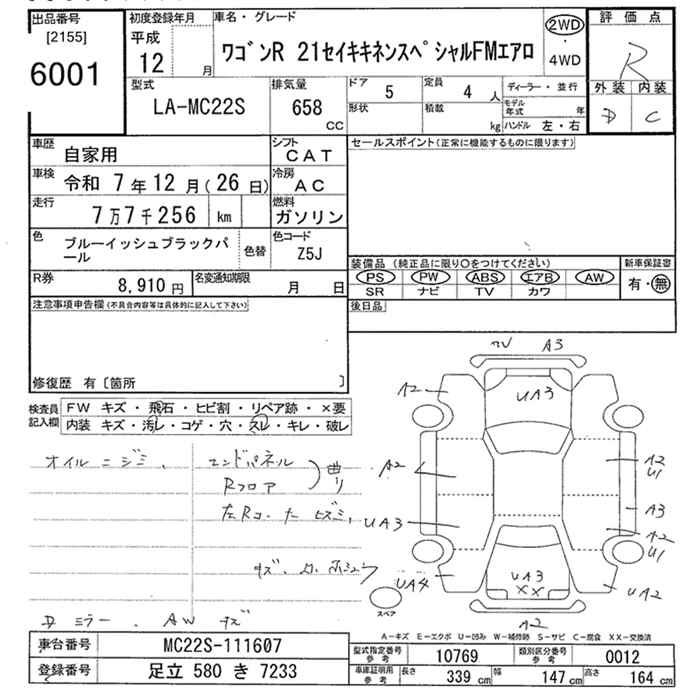 出品番号
[2155]
6001
初度登録年月
平成
12 月
車名・グレード
ワゴンR 21セイキキネンスペシャルFMエアロ
2WD
・
4WD
評価点
R
外装 内装
D C
型式
LA-MC22S
排気量
658
CC
ドア 5
形状
定員 4 人
積載
kg
ディーラー・並行
モデル年式 年
ハンドル 左・右
車歴 自家用
シフト
CAT
車検 令和 7年12月(26日)
冷房
AC
走行
7万7千256 km
燃料
ガソリン
色
ブルーイッシュブラックパール
色替
色コード
Z5J
R券 8,910円
名変通知期限 月 日
セールスポイント(正常に機能するものに限ります)
装備品 (純正品に限り○をつけてください)
PS PW ABS エアB AW
SR ナビ TV カワ
新車保証書
有・無
後日品
注意事項申告欄(不具合内容等は具体的に記入して下さい)
修復歴 有〔箇所 〕
検査員
記入欄
FW キズ・飛石・ヒビ割・リペア跡・×要
内装 キズ・汚レ・コゲ・穴・スレ・キレ・破レ
オイルニジミ
エンドパネル
Rフロア
曲り
左Rコーナー
A3
A2
UA3
A2
A2
U1
A3
UA3
A2
U1
UA4
UA3
XX
UA2
A2
スペア
Dミラー、AWキズ
A-キズ E-エクボ U-凹み W-補修跡 S-サビ C-腐食 XX-交換済
車台番号 MC22S-111607
登録番号 足立 580 き 7233
型式指定番号
参考
10769
類別区分番号
参考
0012
車庫証明用
参考
長さ 339 cm
幅 147 cm
高さ 164 cm